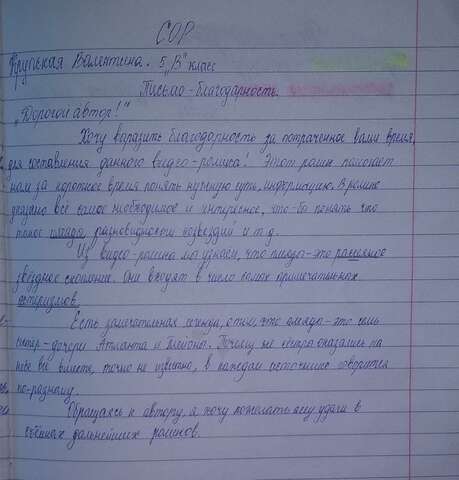 СОР
Крупская Валентина. 5 "В" класс
Письмо-благодарность.
"Дорогой автор!"
Хочу выразить благодарность за потраченное вами время,
для составления данного видео-ролика! Этот ролик помогает
нам за короткое время понять нужную суть, информацию. В ролике
указано всё самое необходимое и интересное, что-бы понять что
такое плеяда, разновидности созвездий и т.д.
Из видео-ролика мы узнаем, что плеяда-это рассеяное
звёздное скопление. Они входят в число самых примечательных
астеризмов.
Есть замечательная легенда, о том, что плеяда-это семь
сестер-дочери Атланта и Плейоны. Почему же сестры оказались на
небе все вместе, точно не известно, в каждом источнике говорится
по-разному.
Обращаясь к автору, я хочу пожелать ему удачи в
съёмках дальнейших роликов.